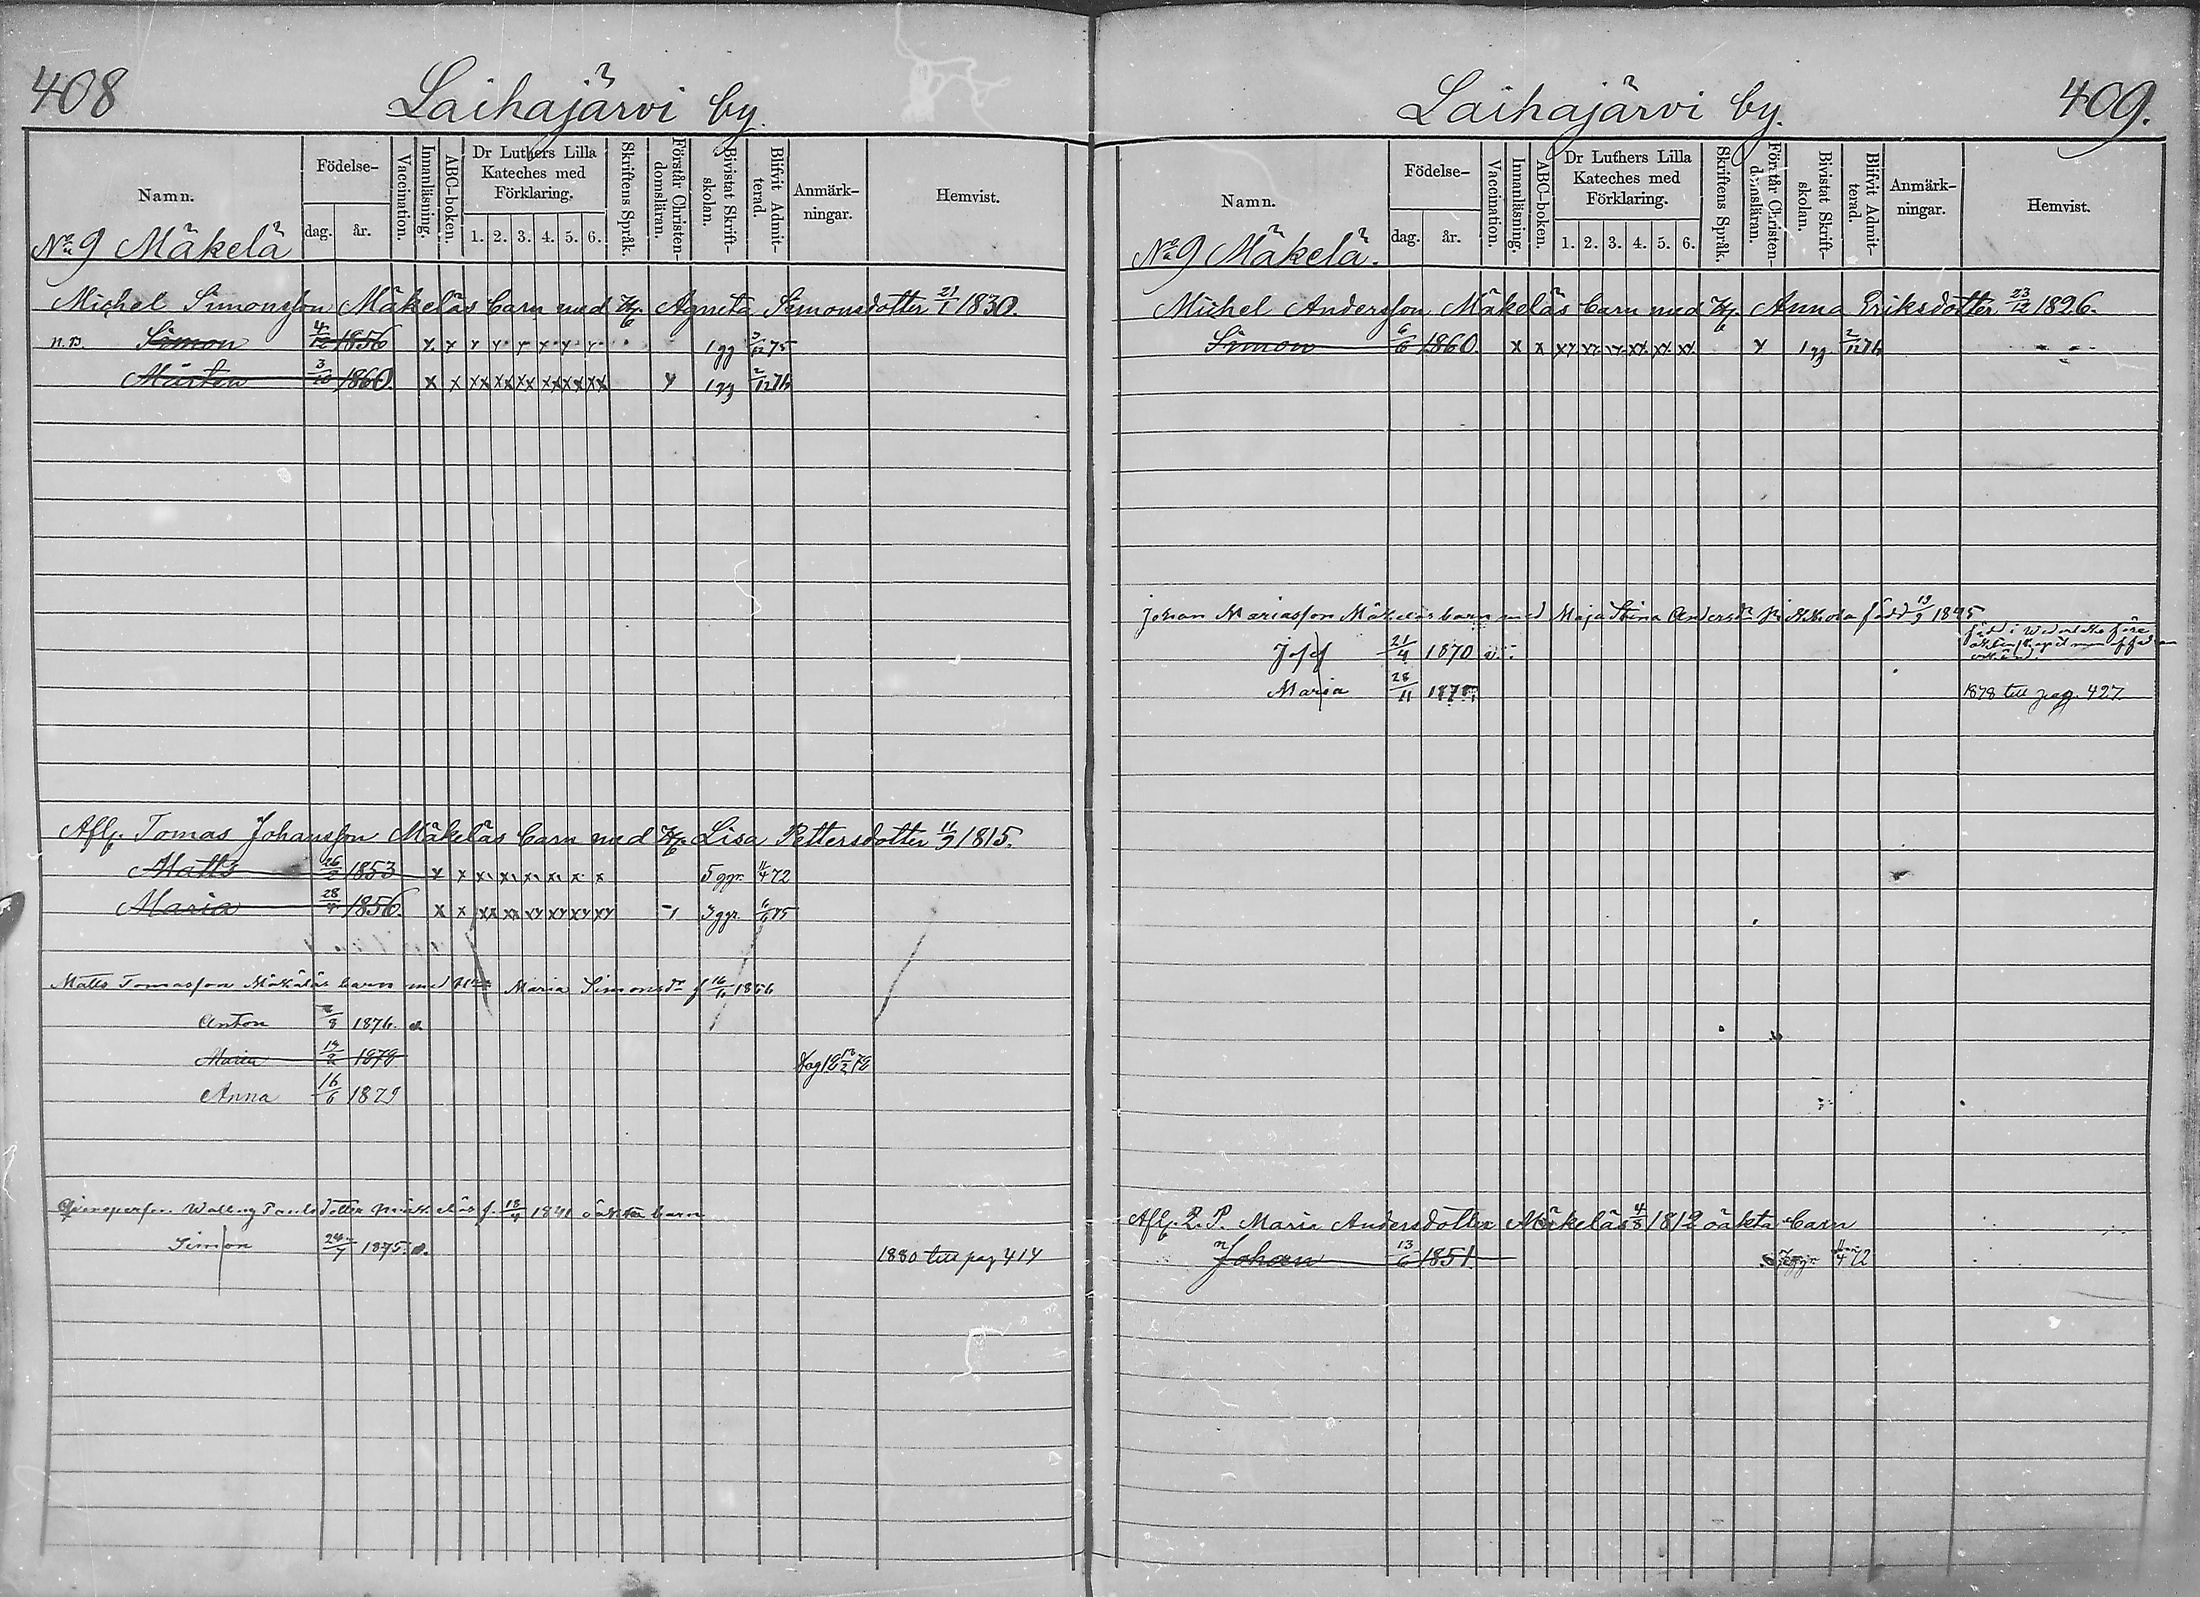 408
Laihajärvi by.
Namn.
Födelse-
dag. år.
Vaccination.
Innanläsning.
ABC-boken.
Dr Luthers Lilla Kateches med Förklaring.
1. 2. 3. 4. 5. 6.
Skriftens Språk.
Förstår Christendomsläran.
Bivistat Skriftskolan.
Blifvit Admitterad.
Anmärkningar.
Hemvist.
No 9 Mäkelä
Michel Simonsson Mäkeläs barn med H. Agneta Simonsdotter 21/1 1830.
n.B. Simon 4/12 1856 x x x x x x x x 1 gg 3/12 75
Mårten 3/10 1860 x x xx xx xx xx xx xx x 1 gg 2/12 76
Afl. Tomas Johansson Mäkeläs barn med H. Lisa Pettersdotter 11/9 1815.
Matts 26/2 1853 x x x x x x x x 5 ggr. 11/4 72
Maria 28/4 1856. x x xx xx xx xx xx xx 3 ggr.
Matts Tomasson Mäkeläs barn med Maria Simonsdr f 16/11 1856
Anton 1876.
Maria 1878
Anna 16/6 1879
Paulsdotter Mäkeläs f. oäkta barn
Simon 24/7 1875. 1880 till pag 414
Laihajärvi by.
409.
Namn.
Födelse-
dag. år.
Vaccination.
Innanläsning.
ABC-boken.
Dr Luthers Lilla Kateches med Förklaring.
1. 2. 3. 4. 5. 6.
Skriftens Språk.
Förstår Christendomsläran.
Bivistat Skriftskolan.
Blifvit Admitterad.
Anmärkningar.
Hemvist.
No 9 Mäkelä.
Michel Andersson Mäkeläs barn med H. Anna Eriksdotter 23/12 1826.
Simon 6/6 1860. x x xx xx xx xx xx xx x 1 gg 2/12 76
Johan Mariasson Mäkeläs barn med Maja Stina Andersdr född 19/9 1845
Josef 21/4 1870
Maria 28/11 1878 till pag. 427
Afl. Maria Andersdotter Mäkeläs 4/8 1812 oäkta barn
Johan 13/6 1851. 11/4 72